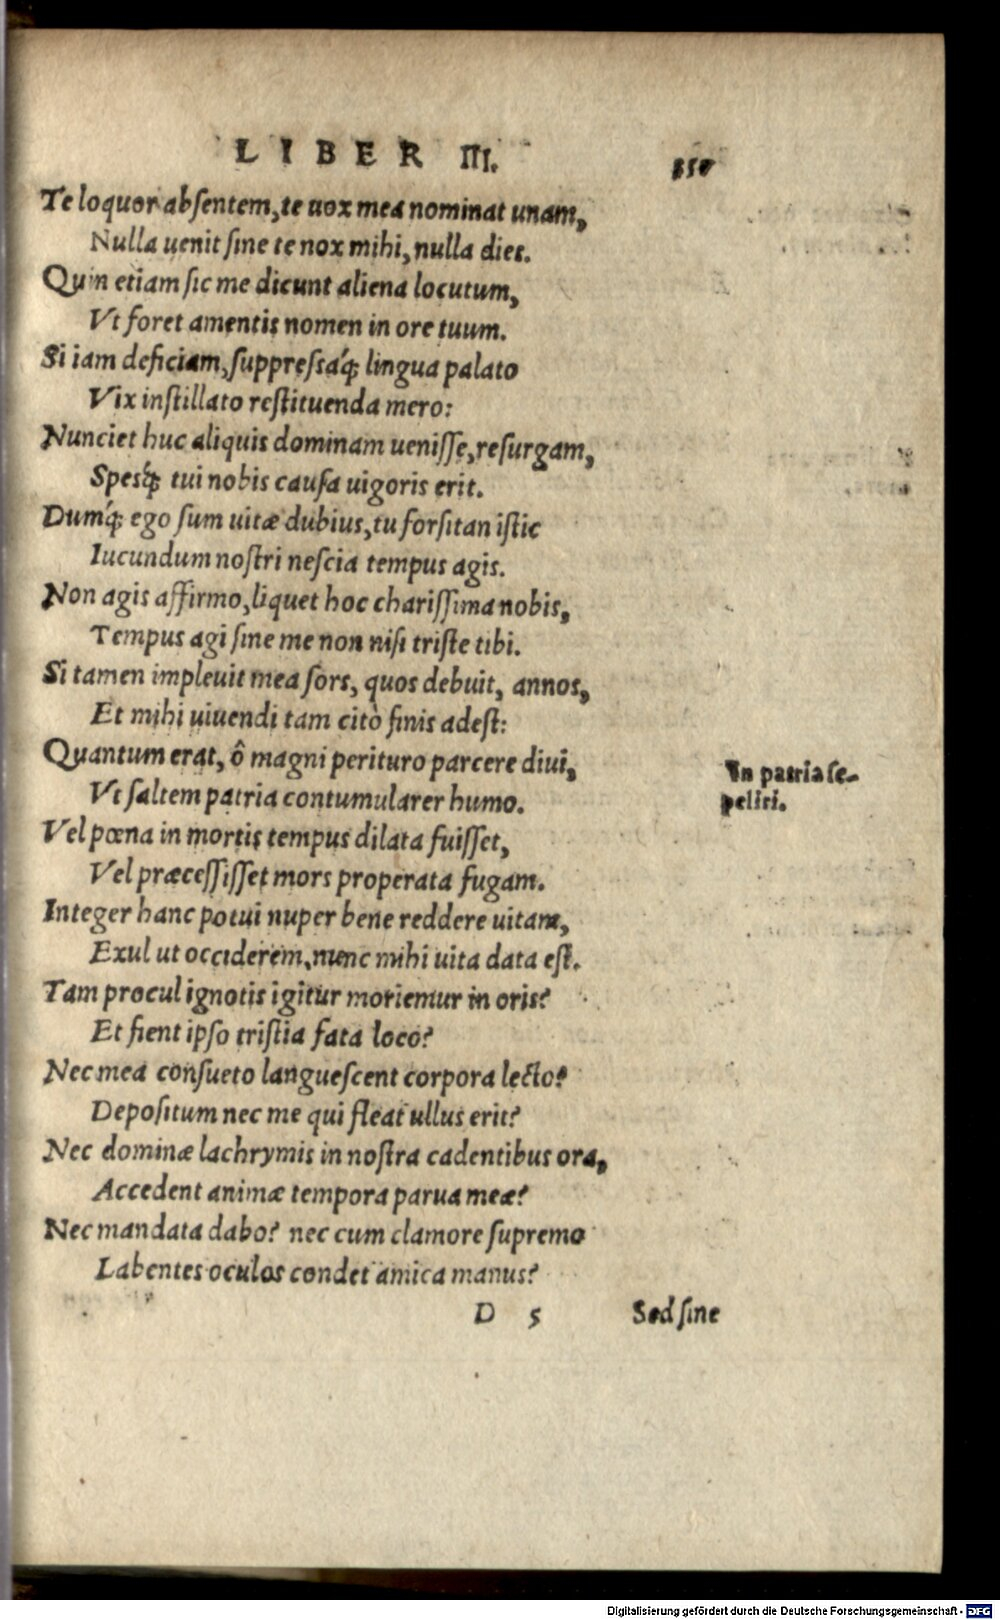 LIBER III.
Te loquor absentem, te uox mea nominat unam,
Nulla uenit sine te nox mihi, nulla dies.
Quin etiam sic me dicunt aliena locutum,
Vt foret amentis nomen in ore tuum.
Si iam deficiam, suppressáq; lingua palato
Vix instillato restituenda mero:
Nunciet huc aliquis dominam uenisse, resurgam,
Spesq́; tui nobis causa uigoris erit.
Dumq́; ego sum uitæ dubius, tu forsitan istic
Iucundum nostri nescia tempus agis.
Non agis affirmo, liquet hoc charissima nobis,
Tempus agi sine me non nisi triste tibi.
Si tamen impleuit mea sors, quos debuit, annos,
Et mihi uiuendi tam citò finis adest:
Quantum erat, ô magni perituro parcere diui,
Vt saltem patria contumularer humo.
In patria se-
peliri.
Vel pœna in mortis tempus dilata fuisset,
Vel præcessisset mors properata fugam.
Integer hanc potui nuper bene reddere uitam,
Exul ut occiderem, nunc mihi uita data est.
Tam procul ignotis igitur moriemur in oris?
Et fient ipso tristia fata loco?
Nec mea consueto languescent corpora lecto?
Depositum nec me qui fleat ullus erit?
Nec dominæ lachrymis in nostra cadentibus ora,
Accedent animæ tempora parua meæ?
Nec mandata dabo? nec cum clamore supremo
Labentes oculos condet amica manus?
D 5 Sed sine
Digitalisierung gefördert durch die Deutsche Forschungsgemeinschaft - DFG